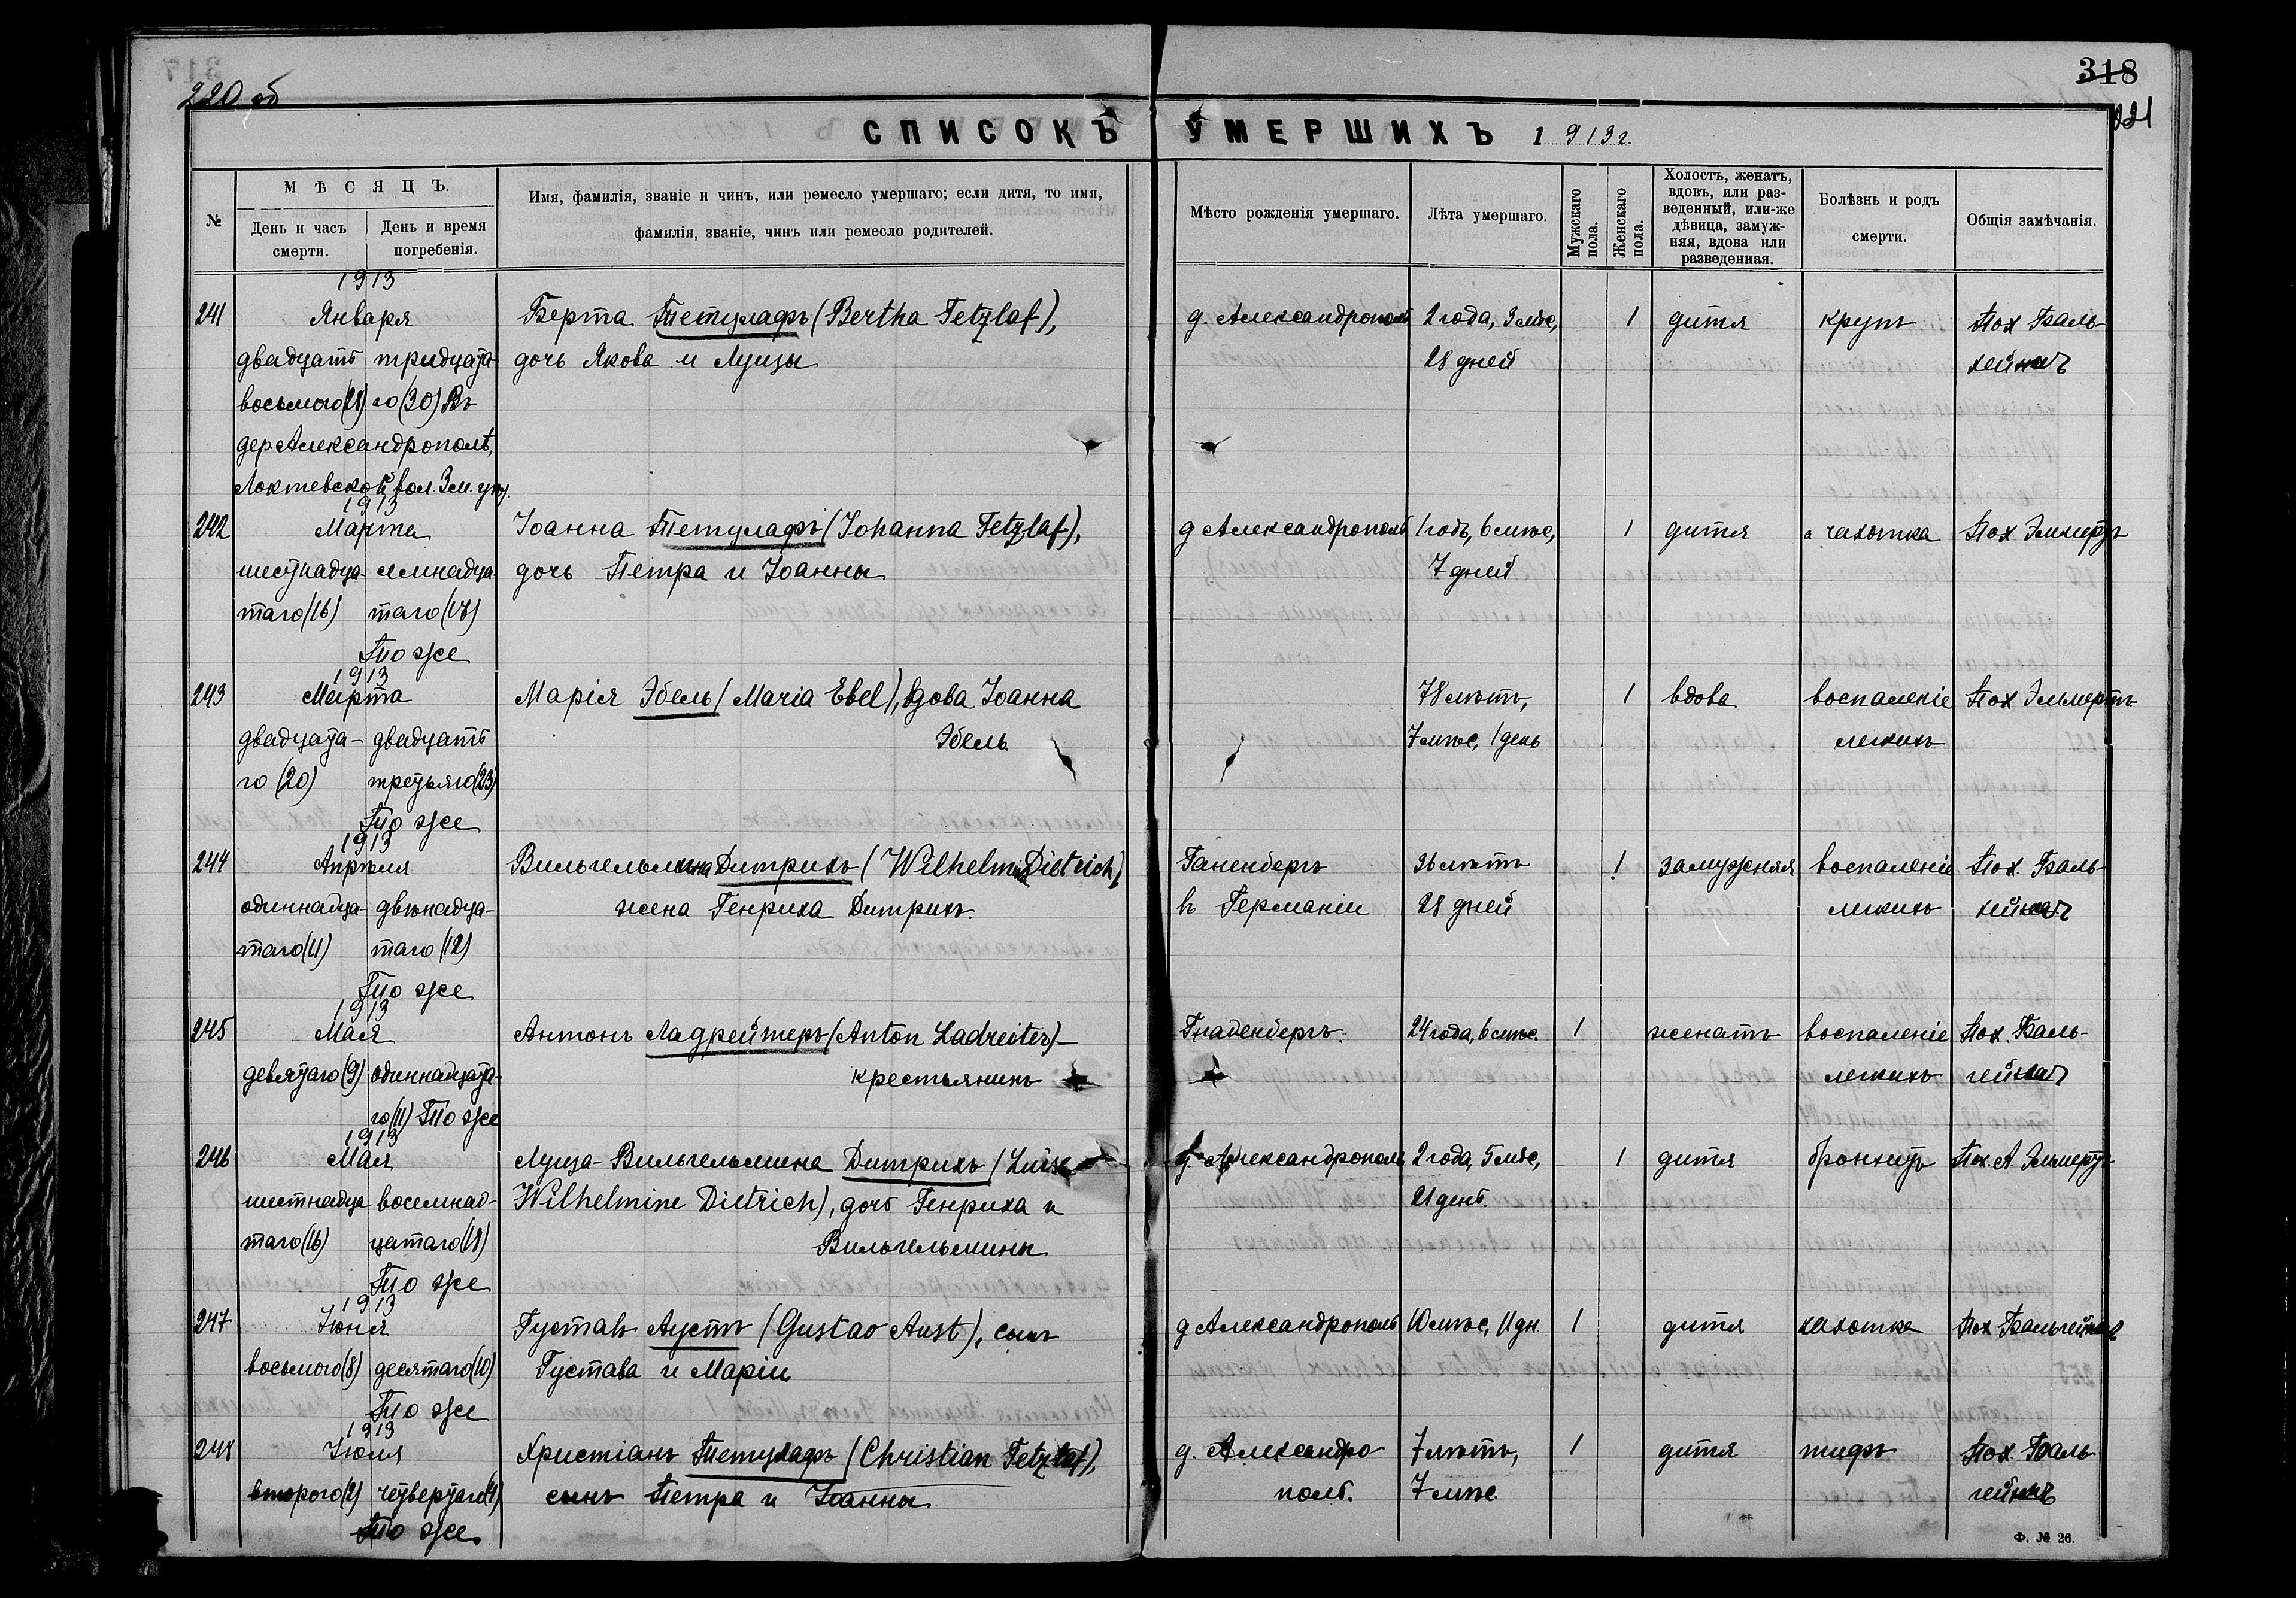 318
220 об
221
СПИСОКЪ УМЕРШИХЪ 1913 г.
№
МѢСЯЦЪ.
День и часъ смерти.
День и время погребенія.
Имя, фамилія, званіе и чинъ, или ремесло умершаго; если дитя, то имя,
фамилія, званіе, чинъ или ремесло родителей.
Мѣсто рожденія умершаго.
Лѣта умершаго.
Мужскаго пола.
Женскаго пола.
Холостъ, женатъ,
вдовъ, или раз-
веденный, или-же
дѣвица, замуж-
няя, вдова или
разведенная.
Болѣзнь и родъ
смерти.
Общія замѣчанія.
1913
241 Января Берта Тетцлафъ (Bertha Tetzlaf), д. Александрополь 2 года, 3 мѣс, 1 дитя крупъ Пох Валь-
двадцать тридцата- дочь Якова и Луизы 28 дней
восьмого (28) го (30) Въ
дер. Александрополѣ,
Локтевской вол. Зм. у.
1913
242 Марта Іоанна Тетцлафъ (Johanna Tetzlaf), д Александрополь 1 годъ, 6 мѣс, 1 дитя чахотка Пох Эльмертъ
шестнадца- семнадца- дочь Петра и Іоанны 7 дней
таго (16) таго (17)
То же
1913
243 Марта Марія Эбель (Maria Ebel), вдова Іоанна 78 лѣтъ, 1 вдова воспаленіе Пох Эльмертъ
двадцата- двадцать Эбель 7 мѣс, 1 день легкихъ
го (20) третьяго (23)
То же
1913
244 Апрѣля Вильгельмина Дитрихъ (Wilhelmine Dietrich), Ганенбергъ 36 лѣтъ 1 замужняя воспаленіе Пох. Валь-
одиннадца- двѣнадца- жена Генриха Дитрихъ. в Германіи 28 дней легкихъ
таго (11) таго (12)
То же
1913
245 Мая Антонъ Ладрейтеръ (Anton Ladreiter)- Гнаденбергъ. 24 года, 6 мѣс. 1 женатъ воспаленіе Пох. Валь-
девятаго (9) одиннадцата- крестьянинъ легкихъ
го (11) То же
1913
246 Мая Луиза-Вильгельмина Дитрихъ (Luise д. Александрополь 2 года, 5 мѣс, 1 дитя бронхитъ Пох. А. Эльмертъ
шестнадца восемнад- Wilhelmine Dietrich), дочь Генриха и 21 день.
таго (16) цатаго (18) Вильгельмины
То же
1913
247 Іюня Густавъ Аустъ (Gustav Aust), сынъ д Александрополь 10 мѣс, 11 дн. 1 дитя чахотка Пох
восьмого (8) десятаго (10) Густава и Маріи
То же
1913
248 Іюля Христіанъ Тетцлафъ (Christian Tetzlaf), д. Александро 7 лѣтъ, 1 дитя тифъ Пох. Валь
второго (2) четвертаго (4) сынъ Петра и Іоанны поль. 7 мѣс
То же
Ф. № 26.